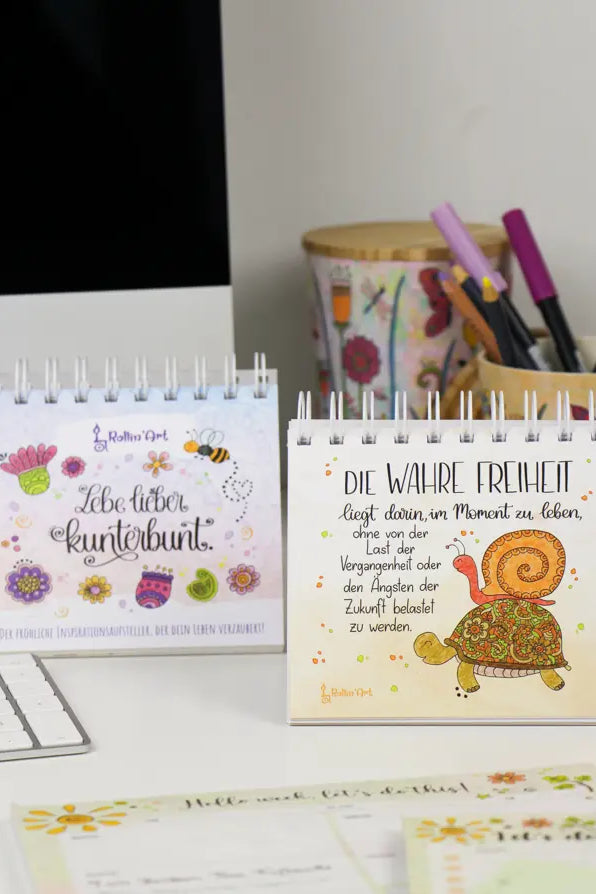 Rollin'Art
Lebe lieber
kunterbunt.
DER FRÖHLICHE INSPIRATIONSAUFSTELLER, DER DEIN LEBEN VERZAUBERT!
DIE WAHRE FREIHEIT
liegt darin, im Moment zu leben,
ohne von der
Last der
Vergangenheit oder
den Ängsten der
Zukunft belastet
zu werden.
Rollin'Art
Hello week, let's do this!
Let's d